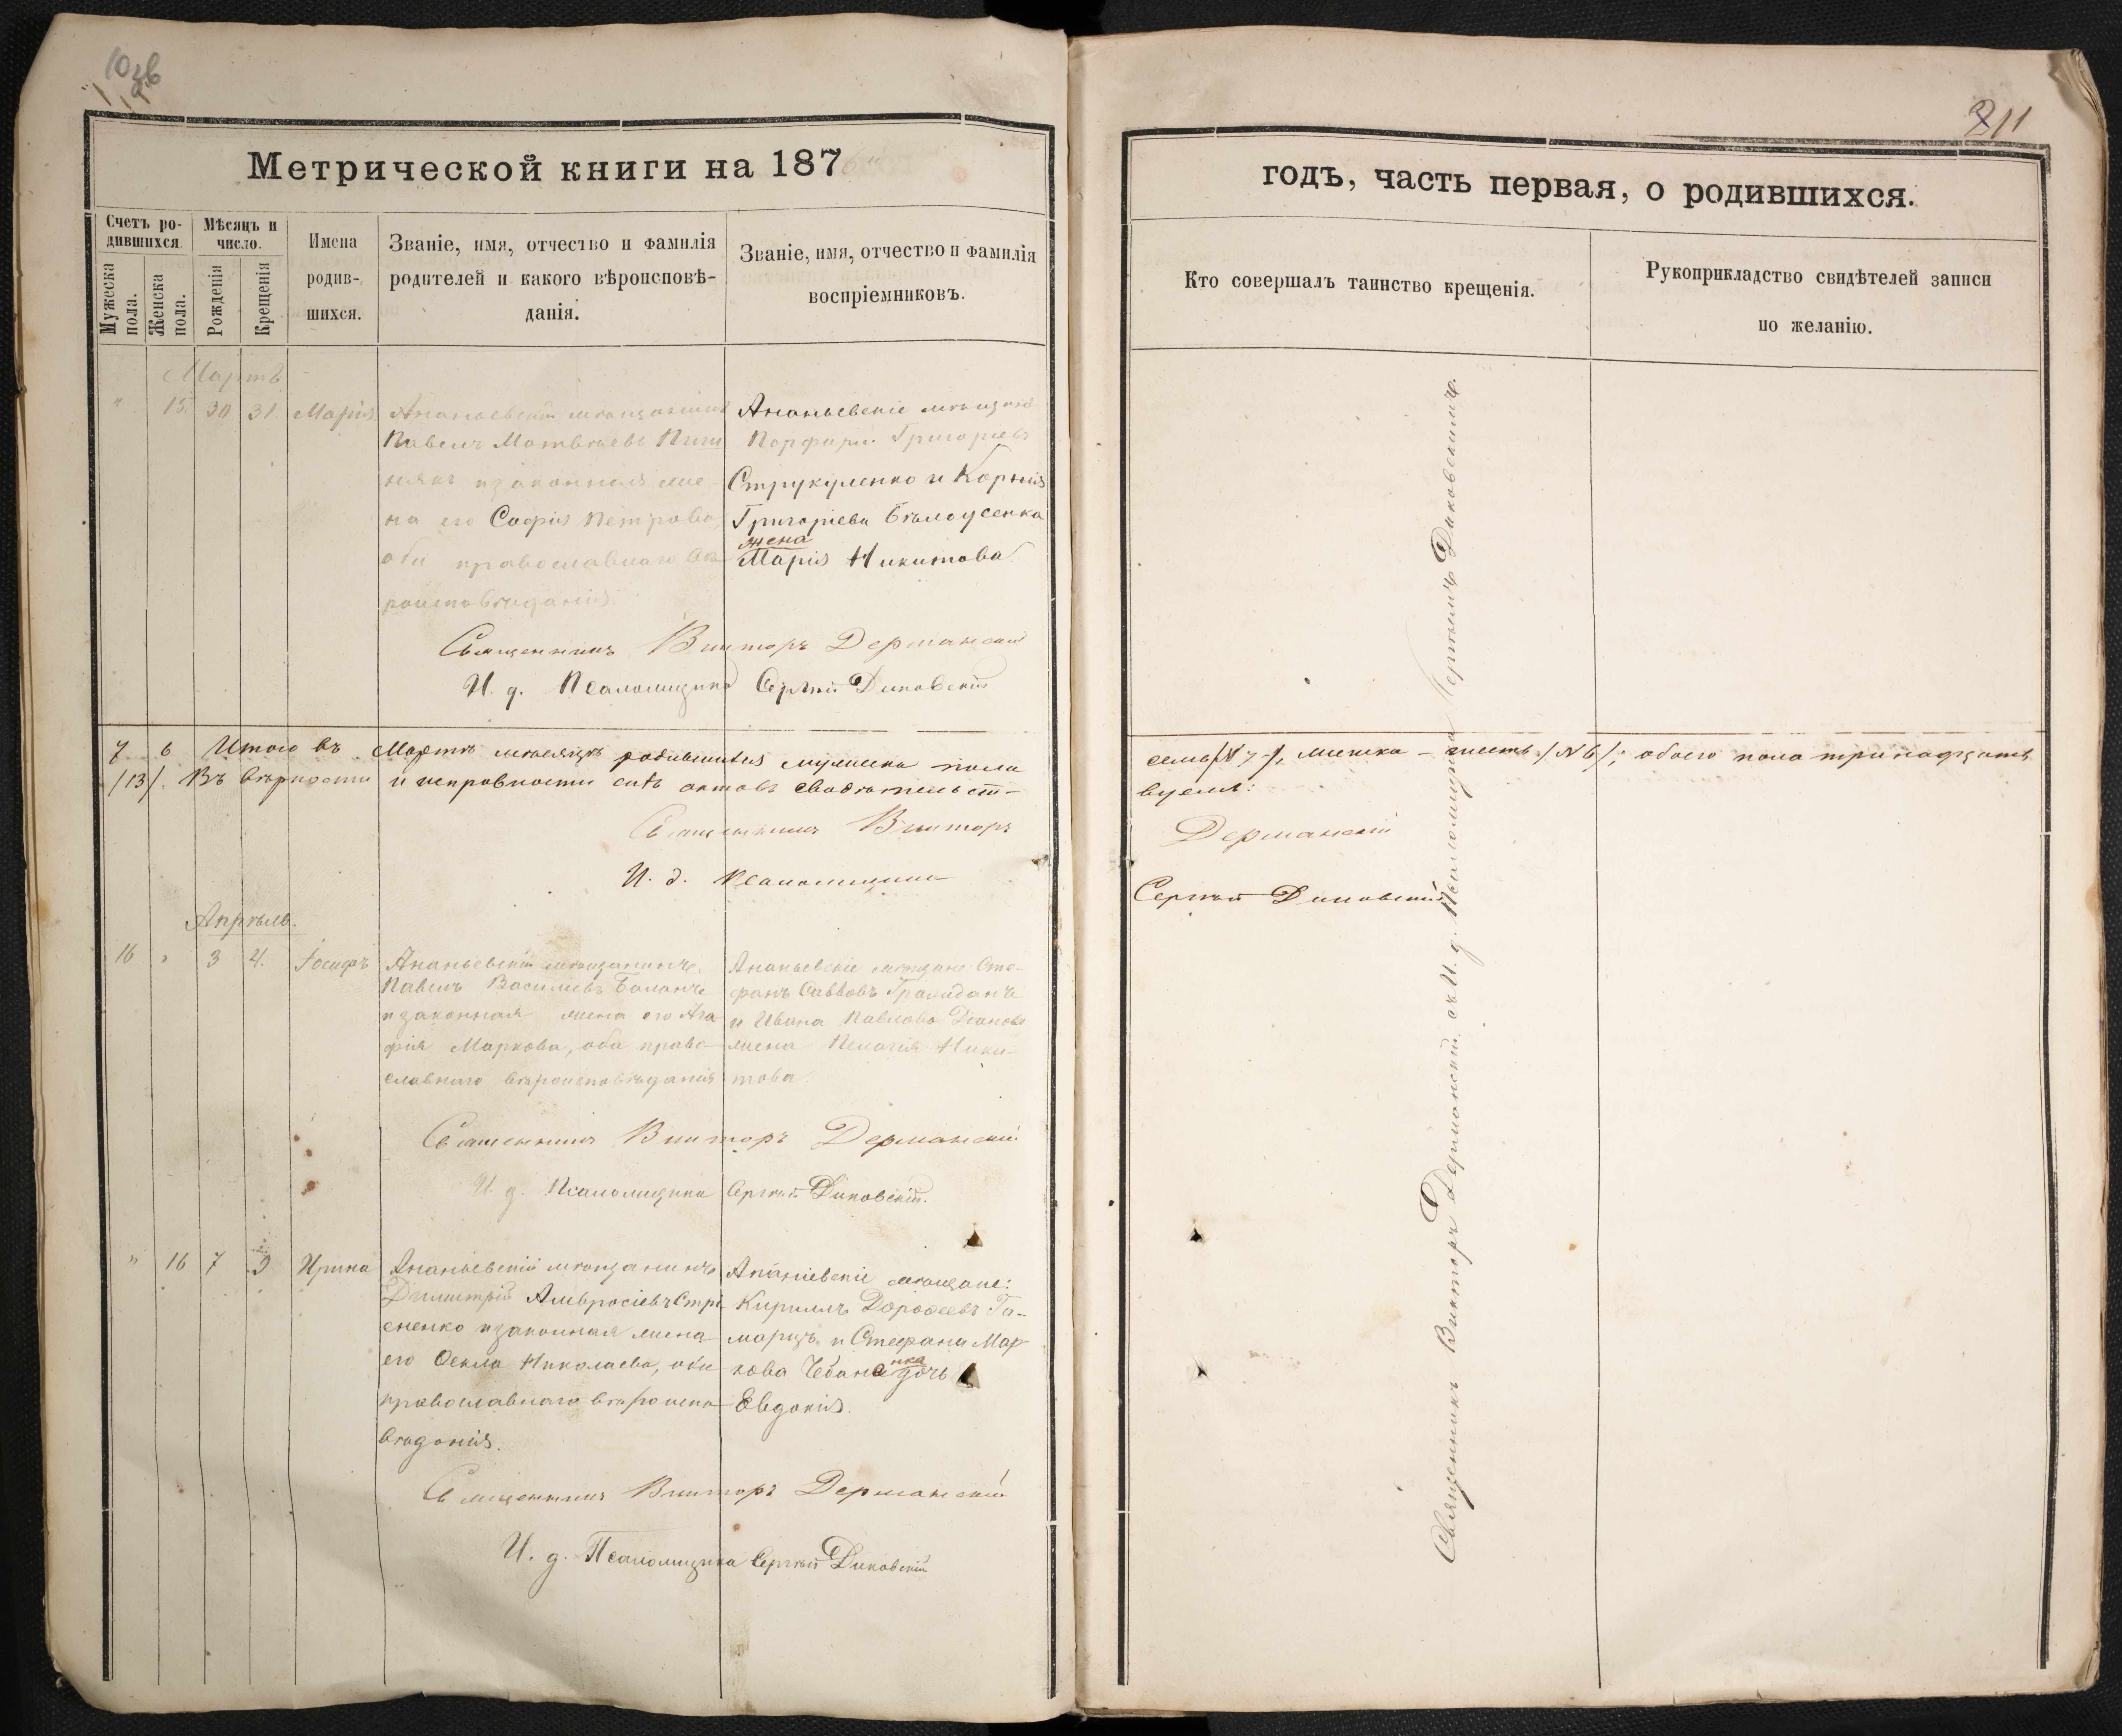 211
Метрической книги на 1876
годъ, часть первая, о родившихся.
Счетъ ро-
дившихся.
Мужеска пола.
Женска пола.
Мѣсяцъ и
число.
Рожденія
Крещенія
Имена
родив-
шихся.
Званіе, имя, отчество и фамилія
родителей и какого вѣроисповѣ-
данія.
Званіе, имя, отчество и фамилія
воспріемниковъ.
Кто совершалъ таинство крещенія.
Рукоприкладство свидѣтелей записи
по желанію.
Мартъ
" 15. 30 31. Марія
Ананьевскій мѣщанинъ
Павелъ Матвѣевъ
и законная же-
на его Софія Петрова,
оба православнаго вѣ-
роисповѣданія.
Ананьевскіе мѣщане
Порфирій Григорьевъ
Струкуленко и Корнія
Григоріева Бѣлоусенка
жена
Марія Никитова
Священникъ Викторъ Дерманскій
И. д. Псаломщика Сергѣй Диковскій
7 6 Итого въ Мартѣ мѣсяцѣ родившихся мужеска пола
семь /№ 7/, женска – шесть /№ 6/; обоего пола тринадцать
/13/. Въ вѣрности и исправности сихъ актовъ свидѣтельст-
вуемъ:
Священникъ Викторъ
Дерманскій
И. д. Псаломщика
Сергѣй Диковскій
Апрѣль.
16 " 3 4. Іосифъ
Ананьевскій мѣщанинъ
Павелъ Васильевъ Баланъ
и законная жена его Ага
фія Маркова, оба право-
славнаго вѣроисповѣданія
Ананьевскіе мѣщане: Сте-
фанъ Саввовъ
и Ивана Павлова
жена Пелагія Ники-
това.
Священникъ Викторъ Дерманскій
И. д. Псаломщика Сергѣй Диковскій.
" 16 7 9 Ирина
Ананьевскій мѣщанинъ
Димитрій Амвросіевъ Стрі
сненко и законная жена
его Ѳекла Николаева, оба
православнаго вѣроиспо
вѣданія.
Ананіевскіе мѣщане:
Кириллъ Дороѳеевъ Га-
марцъ и Стефана Мар
кова Чебаненка дочь
Евдокія.
Священникъ Викторъ Дерманскій
И. д. Псаломщика Сергѣй Диковскій
Священникъ Викторъ Дерманскій съ И. д. Псаломщика Сергѣемъ Диковскимъ.